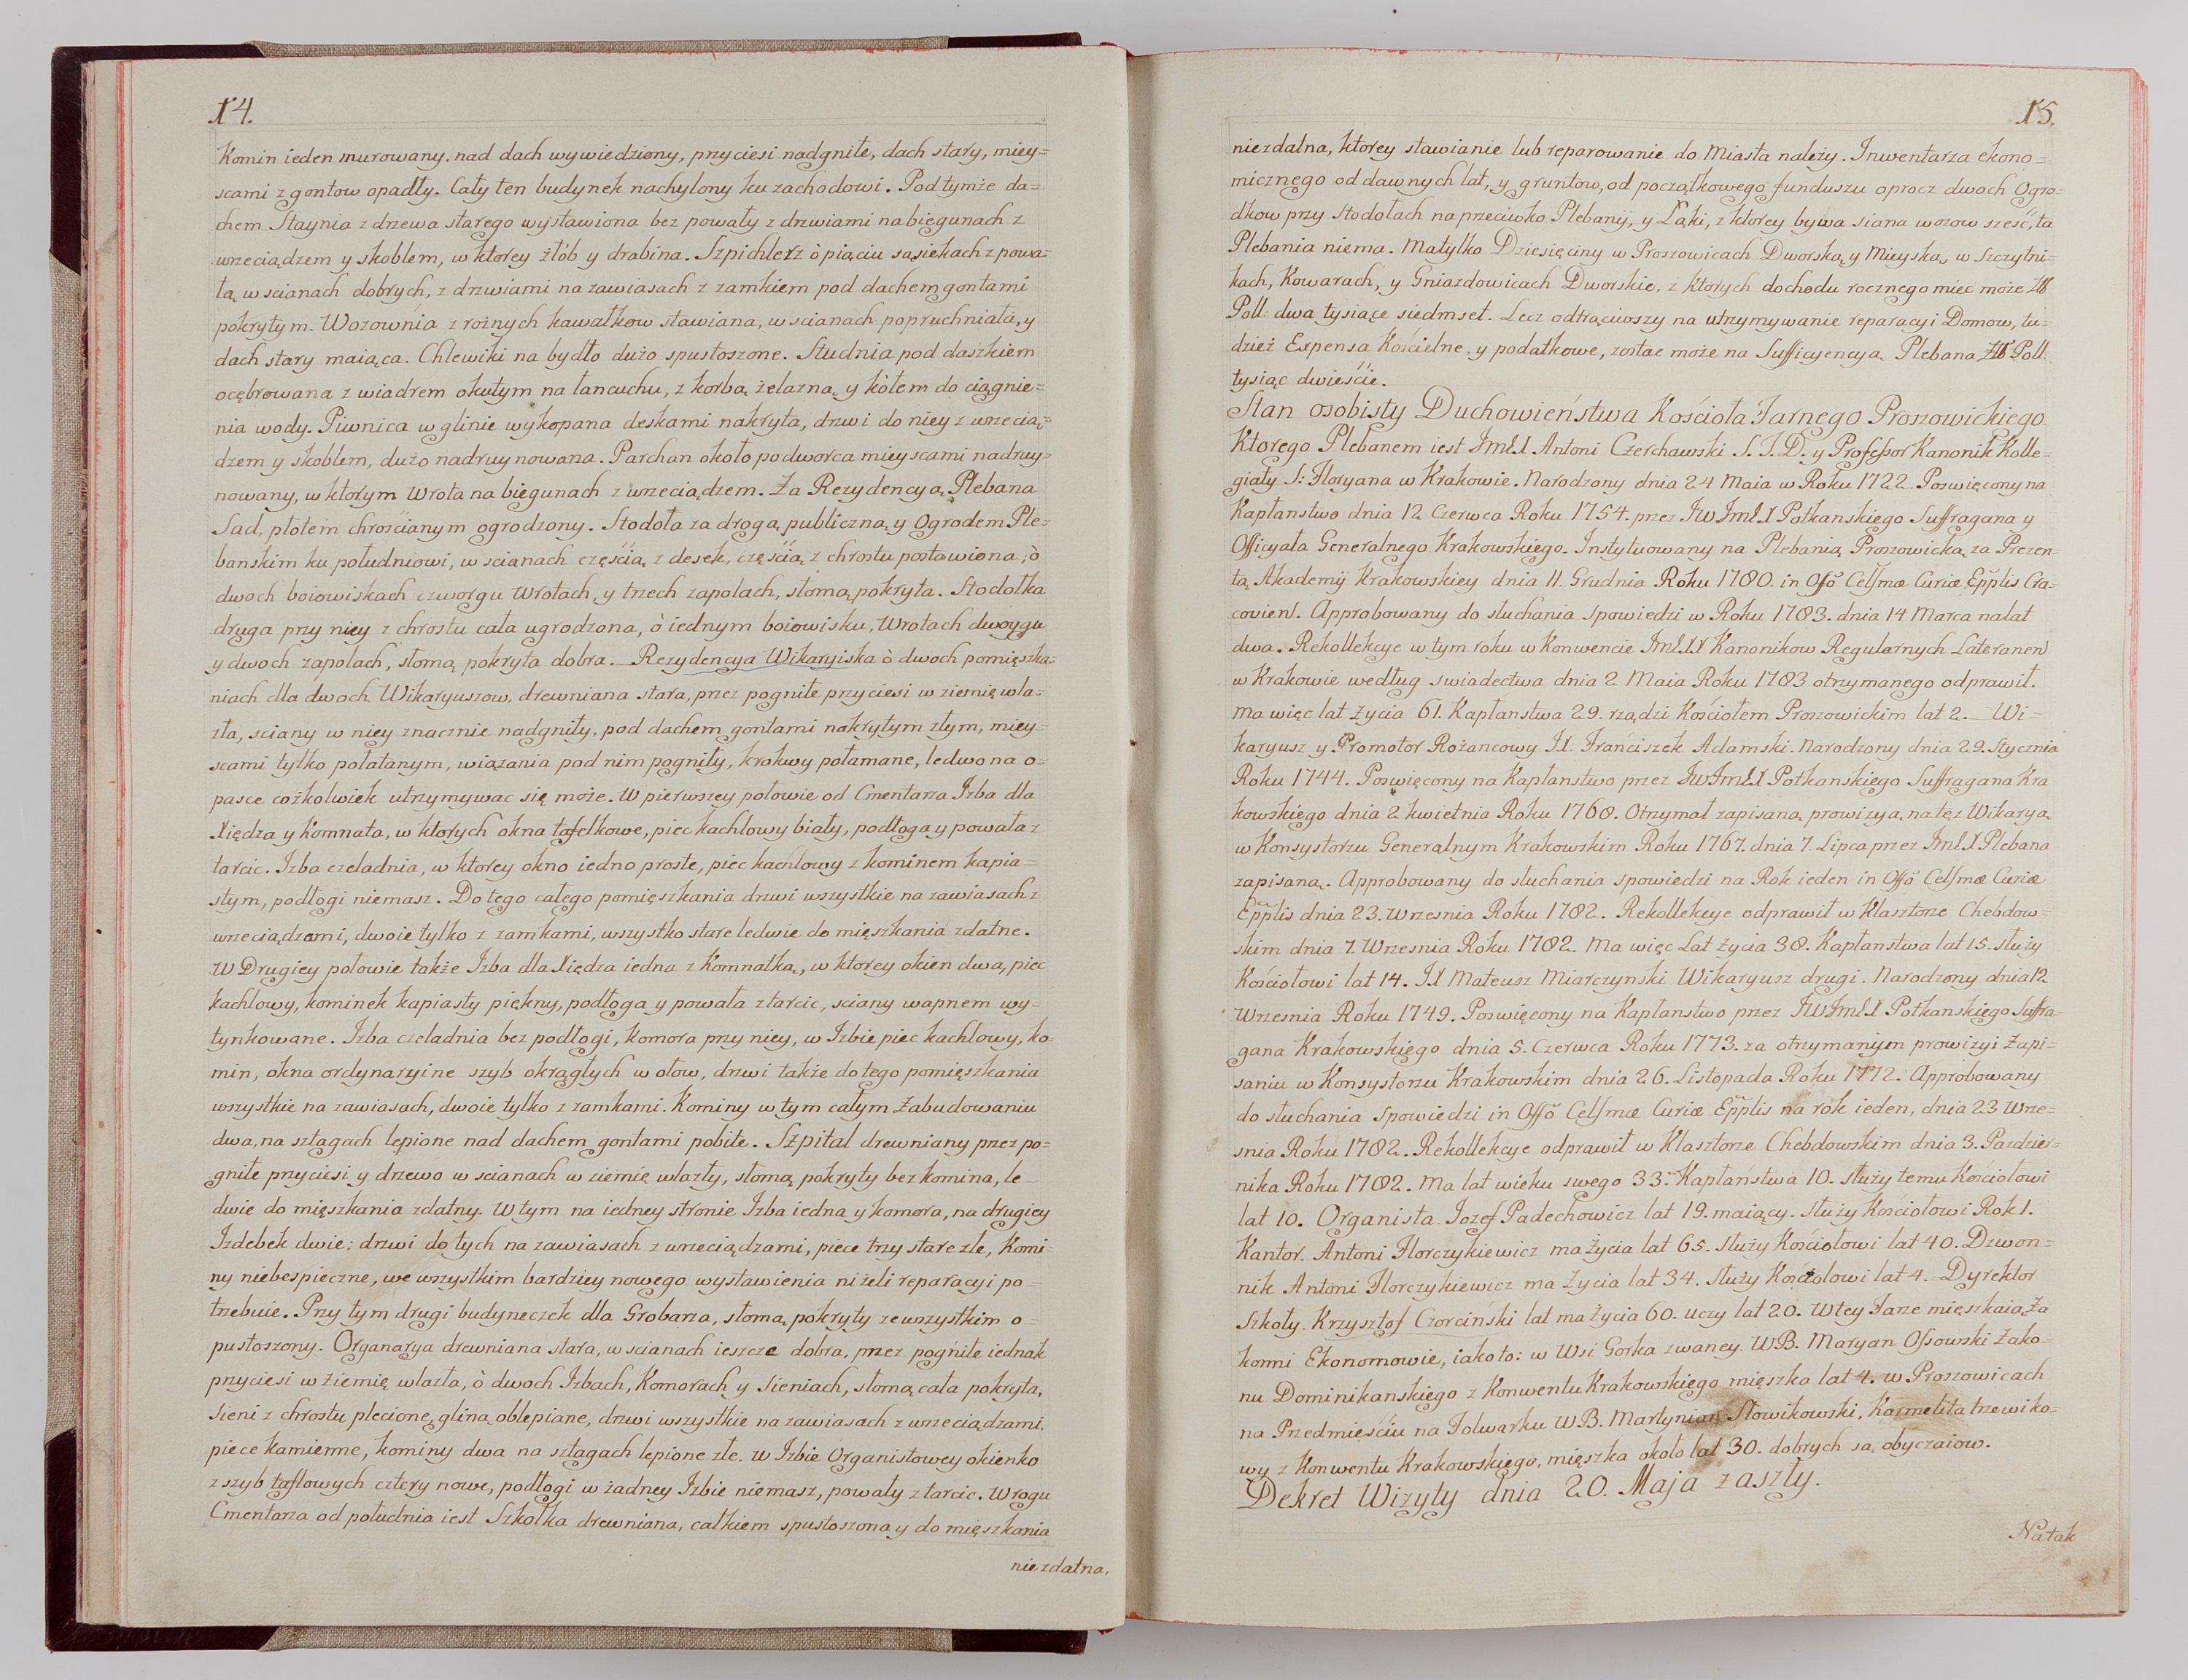 14.
Komin ieden murowany nad dach wywiedziony, przyciesi nadgniłe, dach stary, miey=
scami z gontow opadły. Cały ten budynek nachylony ku zachodowi. Pod tymże da=
chem Staynia z drzewa starego wystawiona bez powały z drzwiami na biegunach z
wrzeciądzem y skoblem, w ktorey żłób y drabina. Szpichlerz ò piąciu sąsiekach z powa=
łą w scianach dobrych, z drzwiami na zawiasach z zamkiem pod dachem gontami
pokrytym. Wozownia z rożnych kawałkow stawiana, w scianach popruchniała, y
dach stary maiąca. Chlewiki na bydło dużo spustoszone. Studnia pod daszkiem
ocębrowana z wiadrem okutym na łancuchu, z korbą żelazną y kołem do ciągnie=
nia wody. Piwnica w glinie wykopana deskami nakryta, drzwi do niey z wrzecią=
dzem y skoblem, dużo nadruynowana. Parchan około podworca mieyscami nadruy=
nowany, w ktorym wrota na biegunach z wrzeciądzem. Za Rezydencyą Plebana
Sad, płotem chrościanym ogrodzony. Stodoła za drogą publiczną y Ogrodem Ple=
banskim ku południowi, w scianach częścią z desek, częścią z chrostu postawiona, ò
dwoch boiowiskach czworgu wrotach, y trzech zapolach, słomą pokryta. Stodołka
druga przy niey z chrostu cała ugrodzona, ò iednym boiowisku, Wrotach dwoygu
y dwoch zapolach, słomą pokryta dobra. Rezydencya Wikaryiska ò dwoch pomięszka=
niach dla dwoch Wikaryuszow, drewniana stara, przez pogniłe przyciesi w ziemię wla=
zła, sciany w niey znacznie nadgniły, pod dachem gontami nakrytym złym, miey=
scami tylko połatanym, wiązania pod nim pogniły, krokwy połamane, ledwo na o=
pasce cożkolwiek utrzymywac się może. W pierwszey połowie od Cmentarza Izba dla
Xiędza y Komnata, w ktorych okna tafelkowe, piec kachlowy biały, podłoga y powała z
tarcic. Izba czeladnia, w ktorey okno iedno proste, piec kachlowy z kominem kapia=
stym, podłogi niemasz. Do tego całego pomięszkania drzwi wszystkie na zawiasach z
wrzeciądzami, dwoie tylko z zamkami, wszystko stare ledwie do mięszkania zdatne.
W Drugiey połowie także Izba dla Xiędza iedna z Komnatką, w ktorey okien dwa, piec
kachlowy, kominek kapiasty piękny, podłoga y powała z tarcic, sciany wapnem wy=
tynkowane. Izba czeladnia bez podłogi, Komora przy niey, w Izbie piec kachlowy, ko=
min, okna ordynaryine szyb okrągłych w ołow, drzwi także do tego pomięszkania
wszystkie na zawiasach, dwoie tylko z zamkami. Kominy w tym całym Zabudowaniu
dwa, na sztagach lepione nad dachem gontami pobite. Szpital drewniany przez po=
gniłe przyciesi y drzewo w scianach w ziemię wlazły, słomą pokryty bez komina, le=
dwie do mięszkania zdatny. W tym na iedney stronie Izba iedna y komora, na drugiey
Izdebek dwie; drzwi do tych na zawiasach z wrzeciądzami, piece trzy stare złe, Komi=
ny niebespieczne, we wszystkim bardziey nowego wystawienia niżeli reparacyi po=
trzebuie. Przy tym drugi budyneczek dla Grobarza, słomą pokryty ze wszystkim o=
pustoszony. Organarya drewniana stara, w scianach ieszcze dobra, przez pogniłe iednak
przyciesi w Ziemię wlazła, ò dwoch Izbach, Komorach y Sieniach, słomą cała pokryta,
Sieni z chrostu plecione, gliną oblepiane, drzwi wszystkie na zawiasach z wrzeciądzami,
piece kamienne, kominy dwa na sztagach lepione złe. w Izbie Organistowey okienko
z szyb taflowych cztery nowe, podłogi w żadney Izbie niemasz, powały z tarcic. W rogu
Cmentarza od południa iest Szkołka drewniana, całkiem spustoszona y do mięszkania
niezdatna,
15.
niezdatna, ktorey stawianie lub reparowanie do Miasta należy. Inwentarza ekono=
micznego od dawnych lat, y gruntow, od początkowego funduszu oprocz dwoch Ogro=
dkow przy Stodołach naprzeciwko Plebanij, y Łąki, z ktorey bywa siana wozow sześć, ta
Plebania niema. Ma tylko Dziesięciny w Proszowicach Dworską y Mieyską, w Szczytni=
kach, Kowarach, y Gniazdowicach Dworskie, z ktorych dochodu rocznego miec może Złł
Poll: dwa tysiące siedmset. Lecz odtrąciwszy na utrzymywanie reparacyi Domow, tu=
dzież Expensa Kościelne, y podatkowe, zostac może na Sufficyencyą Plebana Złł Poll:
tysiąc dwieście.
Stan osobisty Duchowieństwa Kościoła Farnego Proszowickiego.
Ktorego Plebanem iest JmćX Antoni Czerchawski S. T. D. y Professor Kanonik Kolle=
giaty S: Floryana w Krakowie. Narodzony dnia 24 Maia w Roku 1722. Poswięcony na
Kapłanstwo dnia 12 Czerwca Roku 1754. przez JWJmćX Potkanskiego Suffragana y
Officyała Generalnego Krakowskiego. Instytuowany na Plebanią Proszowicką za Prezen=
tą Akademij Krakowskiey dnia 11. Grudnia Roku 1780. in Offõ Celsmæ Curiæ Epplis Cra=
coviens. Approbowany do słuchania spowiedzi w Roku 1783. dnia 14 Marca na lat
dwa. Rekollekcye w tym roku w Konwencie JmćXX Kanonikow Regularnych Lateranen
w Krakowie według swiadectwa dnia 2 Maia Roku 1783 otrzymanego odprawił.
Ma więc lat życia 61. Kapłanstwa 29. rządzi Kościołem Proszowickim lat 2. Wi=
karyusz y Promotor Rożancowy JX. Franciszek Adamski. Narodzony dnia 29. Stycznia
Roku 1744. Poswięcony na Kapłanstwo przez JWJmćX Potkanskiego Suffragana Kra
kowskiego dnia 2 kwietnia Roku 1768. Otrzymał zapisaną prowizyą na tęż Wikaryą
w Konsystorzu Generalnym Krakowskim Roku 1767. dnia 7. Lipca przez JmćX Plebana
zapisaną. Approbowany do słuchania spowiedzi na Rok ieden in Offõ Celsmæ Curiæ
Epplis dnia 23. Wrzesnia Roku 1782. Rekollekcye odprawił w Klasztorze Chebdow=
skim dnia 7. Wrzesnia Roku 1782. Ma więc Lat życia 38. Kapłanstwa lat 15. służy
Kościołowi lat 14. JX Mateusz Miarczynski Wikaryusz drugi. Narodzony dnia 12
Wrzesnia Roku 1749. Poswięcony na Kapłanstwo przez JWJmćX Potkanskiego Suffra=
gana Krakowskiego dnia 5. Czerwca Roku 1773. za otrzymanym prowizyi Zapi=
saniu w Konsystorzu Krakowskim dnia 26. Listopada Roku 1772. Approbowany
do słuchania Spowiedzi in Offõ Celsmæ Curiæ Epplis na rok ieden, dnia 23 Wrze=
snia Roku 1782. Rekollekcye odprawił w Klasztorze Chebdowskim dnia 3. Pazdzier=
nika Roku 1782. Ma lat wieku swego 33. Kapłaństwa 10. Służy temu Kościołowi
lat 10. Organista Jozef Padechowicz lat 19. maiący. Służy Kościołowi Rok 1.
Kantor. Antoni Florczykiewicz ma życia lat 65. Służy Kościołowi lat 40. Dzwon=
nik Antoni Florczykiewicz ma Życia lat 34. Służy Kościołowi lat 4. Dyrektor
Szkoły. Krzysztof Czorciński lat ma Życia 60. uczy lat 20. W tey Farze mięszkaią Za
konni Ekonomowie, iako to: w Wsi Gorka zwaney. WB. Maryan Ossowski Zako=
nu Dominikanskiego z Konwentu Krakowskiego mięszka lat 4. w Proszowicach
na Przedmieściu na Folwarku WB. Martynian Słowikowski, Karmelita trzewiko=
wy z Konwentu Krakowskiego, mięszka około lat 30. dobrych są obyczaiow.
Dekret Wizyty dnia 20. Maja zaszły.
Na tak